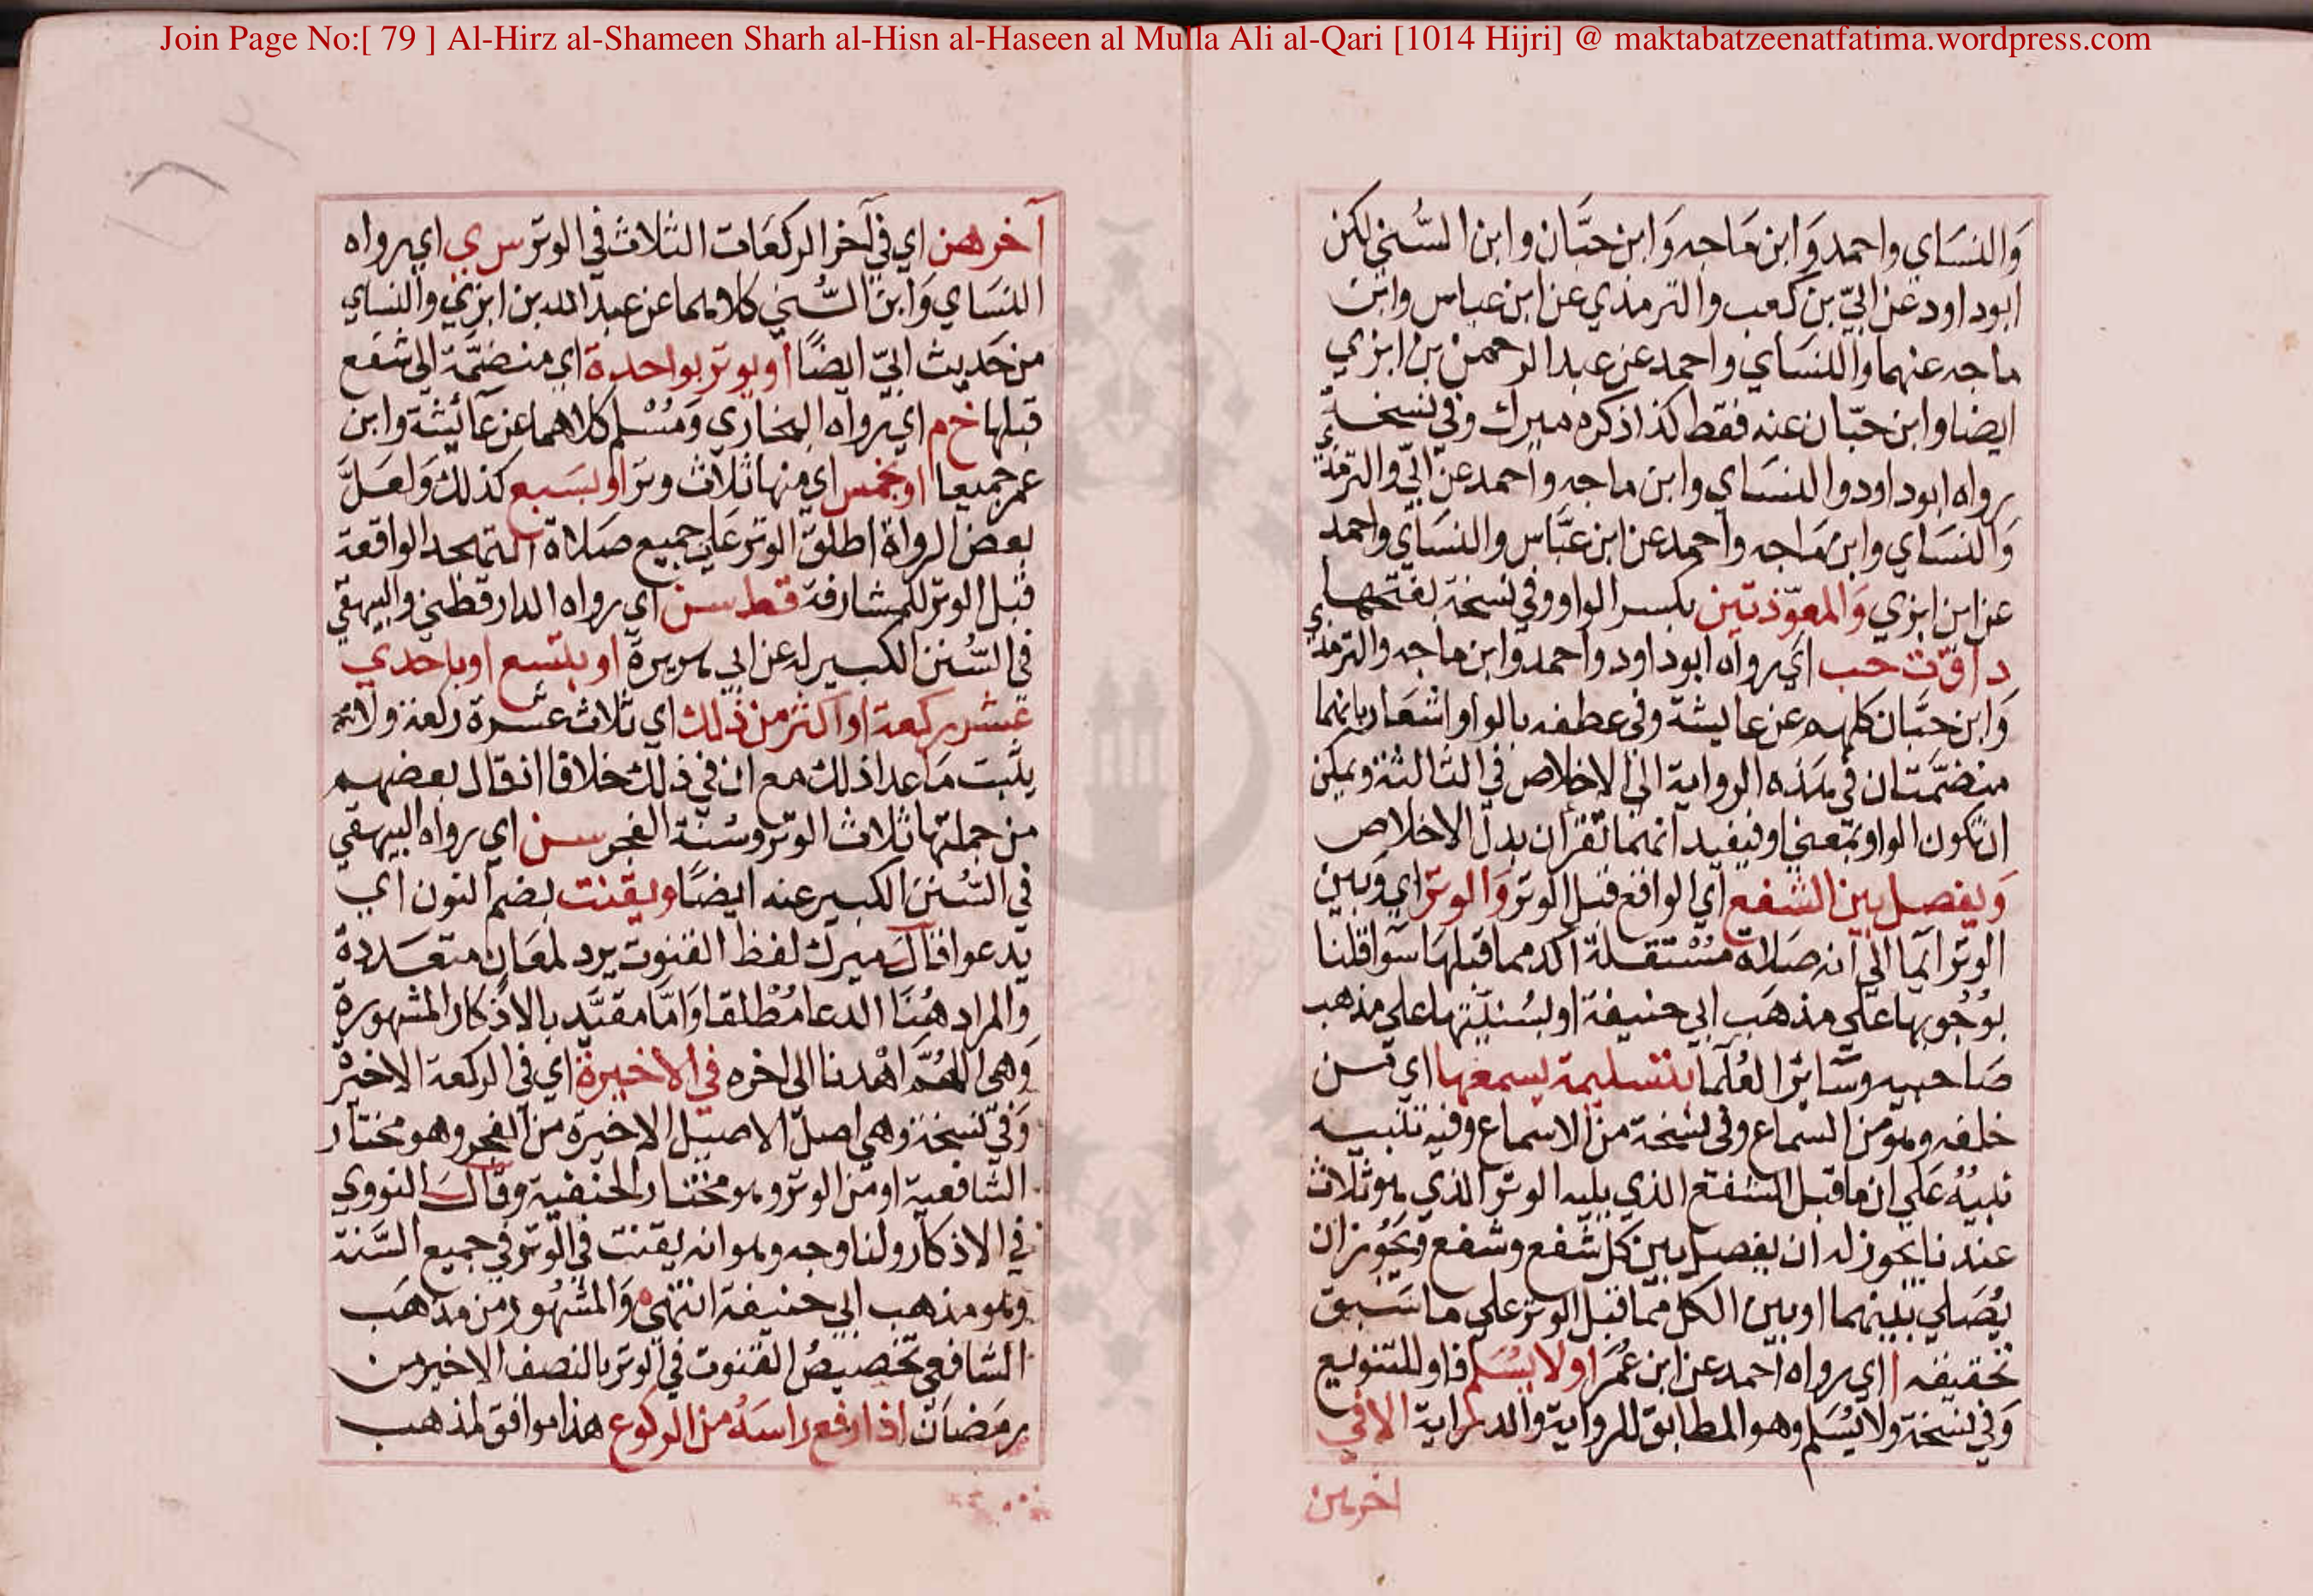 Join Page No:[ 79 ] Al-Hirz al-Shameen Sharh al-Hisn al-Haseen al Mulla Ali al-Qari [1014 Hijri] @ maktabatzeenatfatima.wordpress.com
وَالنسَاي واحمد وَابن مَاجه وَابن حبَّان وابن السُّني لكن
ابوداود عن ابيّ بن كعب والترمذي عن ابن عباس وابن
ماجه عنهما والنسَاي واحمد عن عبد الرحمن بن ابزي
ايضا وابن حبّان عنه فقط كذا ذكره ميرك وفي نسخة
رواه ابوداود والنسَاي وابن ماجه واحمد عن ابيّ والترمذي
وَالنسَاي وابن مَاجه واحمد عن ابن عبَّاس والنسَاي واحمد
عن ابن ابزي وَالمعوّذتين بكسر الواو وفي نسخة بفتحها
د ا ق ت حب اي رواه ابوداود واحمد وابن ماجه والترمذي
وَابن حبَّان كلهم عن عايشة وفي عطفه بالواو اشعَار بانهما
منضمَّتان في هذه الرواية الي الاخلاص في الثالثة ويمكن
ان تكون الواو بمعني او فيفيد انهما تقران بدل الاخلاص
وَيفصل بين الشفع اي الواقع قبل الوتر وَالوتر اي وَبين
الوتر ايما الي انه صَلاة مسْتقلة اكد مما قبلهَا سَوا قلنا
بوُجُوبها علي مذهَب ابي حنيفة او بسُنيّتها علي مذهب
صَاحبيه وسَّائر العُلما بتسليمة يسمعها اي من
خلفه وهو من السماع وفي نسخة من الاسماع وفيه تنبيه
نبيُه عَلي ان ما قبل الشفع الذي يليه الوتر الذي هو ثلاث
عندنا يجوز له ان يفصل بين كل شفع وشفع ويَجُوز ان
يُصَلي بينهما او بين الكل مما قبل الوتر علي ما سَبق
تحقيقه ا اي رواه احمد عن ابن عُمَر اولا يسُلم فاو للتنويع
وَفي نسخة ولا يُسَلم وهو المطابق للرواية والدراية الا في
اخرهن
آخرهن اي في آخر الركعَات الثلاث في الوتر س ي اي رواه
النسَاي وَابن السُّني كلاهما عن عبد الله بن ابزي والنساي
من حَديث ابيّ ايضًا او يوتر بواحدة اي منضمَّة الي شفع
قبلها خ م اي رواه البخاري وَمُسْلم كلاهما عن عَائشة وابن
عمر جميعا او بخمس اي منها ثلاث وتر او بسَبع كذلك وَلعَلَّ
بعض الرواة اطلق الوتر عَلي جميع صَلاة التهجد الواقعة
قبل الوتر للمشارفة قط سن اي رواه الدارقطني والبيهقي
في السُّنن الكبير له عن ابي هريرة او بتسع او باحدي
عشر ركعة او اكثر من ذلك اي ثلاث عشرة ركعة ولم
يثبت مَا عدا ذلك مع ان في ذلك خلافا اذ قال بعضهم
من جملتها ثلاث الوتر وسُنة الفجر سن اي رواه البيهقي
في السُّنن الكبير عنه ايضًا ويقنت بضم النون اي
يدعوا قال ميرك لفظ القنوت يرد لمعَان متعَددة
وَالمراد هُنَا الدعا مُطْلقا وَامَّا مقيَّد بالاذكار المشهورة
وَهي اللهُمَّ اهْدنا الي اخره في الاخيرة اي في الركعة الاخيرة
وَفي نسخة وهي اصل الاصيل الاخيرة من الفجر وهو مختار
الشافعية او من الوتر وهو مختار الحنفية وقال النووي
في الاذكار ولنا وجه وهو انه يقنت في الوتر في جميع السَّنة
وَهو مذهب ابي حنيفة انتهي وَالمشهُور من مذهَب
الشافعي تخصيصُ القنوت في الوتر بالنصف الاخير من
رمَضان اذا رفع راسَهُ من الركوع هذا موافق لمذهب